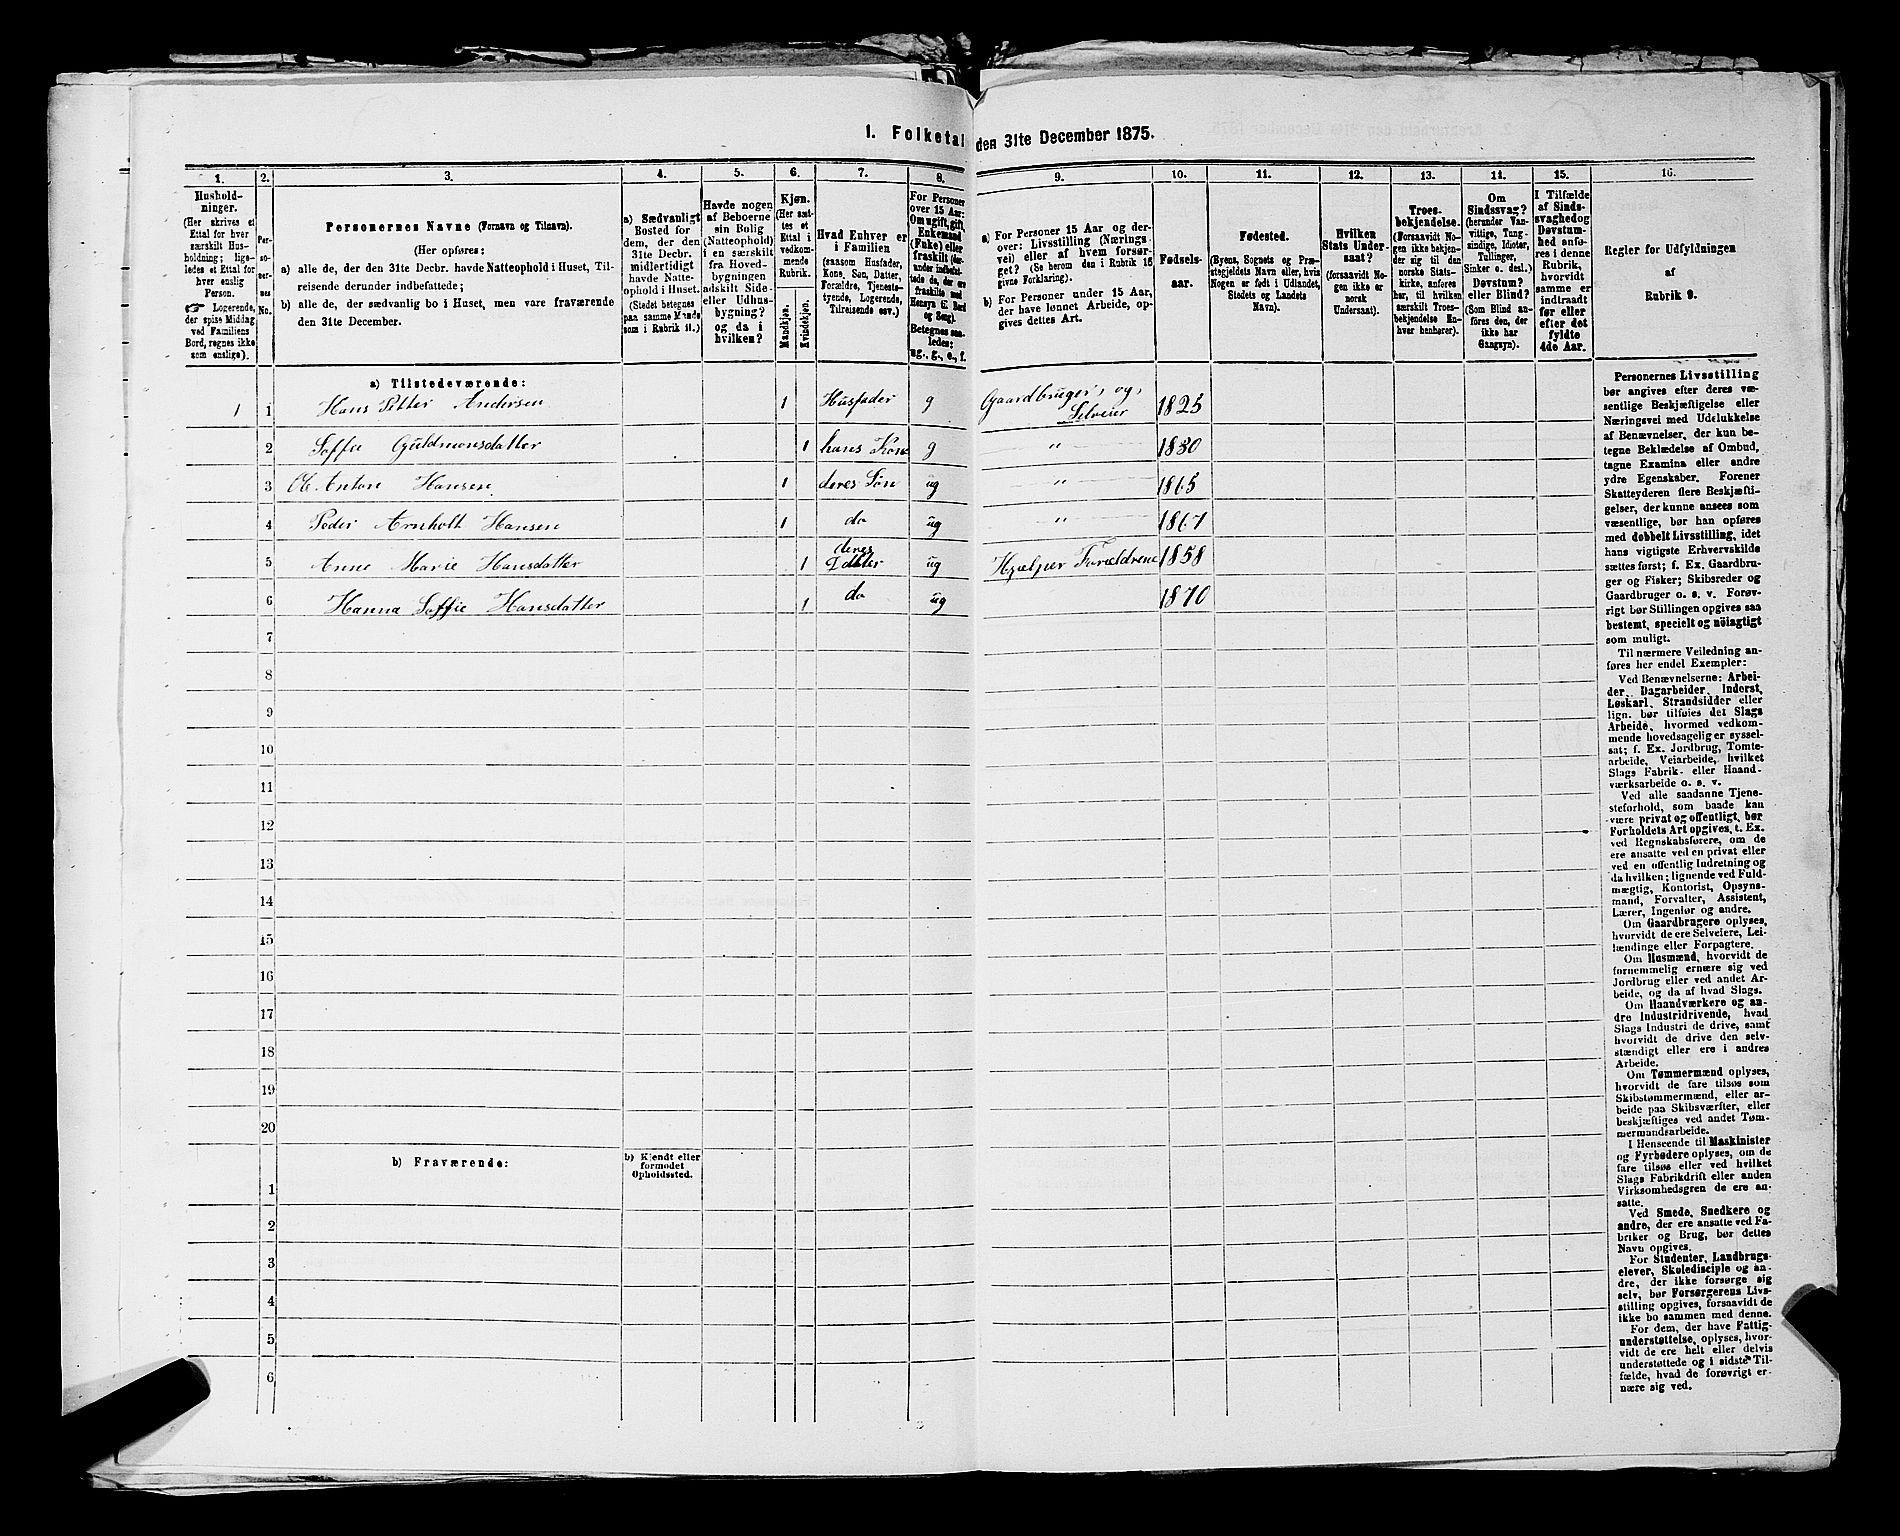 1. Folketal den 31te December 1875.
1.
Hushold-
ninger.
(Her skrives et
Ettal for hver
særskilt Hus-
holdning; lige-
ledes et Ettal for
hver enslig
Person.
☞ Logerende,
der spise Middag
ved Familiens
Bord, regnes ikke
som enslige).
2.
Per-
so-
ner-
nes
No.
3.
Personernes Navne (Fornavn og Tilnavn).
(Her opføres:
a) alle de, der den 31te Decbr. havde Natteophold i Huset, Til-
reisende derunder indbefattede;
b) alle de, der sædvanlig bo i Huset, men vare fraværende
den 31te December.
4.
a) Sædvanligt
Bosted for
dem, der den
31te Decbr.
midlertidigt
havde Natte-
ophold i Huset.
(Stedet betegnes
paa samme Maade
som i Rubrik 11.)
5.
Havde nogen
af Beboerne
sin Bolig
(Natteophold)
i en særskilt
fra Hoved-
bygningen
adskilt Side-
eller Udhus-
bygning?
og da i
hvilken?
6.
Kjøn.
(Her sæt-
tes et
Ettal i
vedkom-
mende
Rubrik.
Mandkjøn.
Kvindekjøn.
7.
Hvad Enhver er
i Familien
(saasom Husfader,
Kone, Søn, Datter,
Forældre, Tjeneste-
tyende, Logerende,
Tilreisende osv.)
8.
For Personer
over 15 Aar:
Om ugift, gift,
Enkemand
(Enke) eller
fraskilt (der-
under indbefat-
tede de, der ere
fraskilte med
Hensyn til Bord
og Seng).
Betegnes saa-
ledes:
ug., g., e., f.
9.
a) For Personer 15 Aar og der-
over: Livsstilling (Nærings-
vei) eller af hvem forsør-
get? (Se herom den i Rubrik 16
givne Forklaring).
b) For Personer under 15 Aar,
der have lønnet Arbeide, op-
gives dettes Art.
10.
Fødsels-
aar.
11.
Fødested.
(Byens, Sognets og Præ-
stegjeldets Navn eller, hvis
Nogen er født i Udlandet,
Stedets og Landets
Navn).
12.
Hvilken
Stats Under-
saat?
(forsaavidt No-
gen ikke er
norsk
Undersaat).
13.
Troes-
bekjendelse.
(Forsaavidt No-
gen ikke bekjen-
der sig til den
norske Stats-
kirke, anføres
her, til hvilken
særskilt Troes-
bekjendelse En-
hver henhører).
14.
Om
Sindssvag?
(herunder Van-
vittige, Tung-
sindige, Idioter,
Tullinger,
Sinker o. desl.)
Døvstum?
eller Blind?
(Som Blind an-
føres den, der
ikke har
Gangsyn).
15.
I Tilfælde
af Sinds-
svaghed og
Døvstum-
hed anfø-
res i denne
Rubrik,
hvorvidt
samme er
indtraadt
før eller
efter det
fyldte
4de Aar.
16.
Regler for Udfyldningen
af
Rubrik 9.
a) Tilstedeværende:
1 1 Hans Petter Andersen 1 Husfader g Gaardbruger, og, Selveier 1825
2 Soffie Guldmonsdatter 1 hans Kone g " 1830
3 Ole Anton Hansen 1 deres Søn ug " 1865
4 Peder Arnholt Hansen 1 do ug " 1867
5 Anne Marie Hansdatter 1 deres Datter ug Hjælper Forældrene 1858
6 Hanna Soffie Hansdatter 1 do ug 1870
7
8
9
10
11
12
13
14
15
16
17
18
19
20
b) Fraværende:
b) Kjendt eller
formodet
Opholdssted.
1
2
3
4
5
6
Personernes Livsstilling
bør angives efter deres væ-
sentlige Beskjæftigelse eller
Næringsvei med Udelukkelse
af Benævnelser, der kun be-
tegne Beklædelse af Ombud,
tagne Examina eller andre
ydre Egenskaber. Forener
Skatteyderen flere Beskjæfti-
gelser, der kunne ansees som
væsentlige, bør han opføres
med dobbelt Livsstilling, idet
hans vigtigste Erhvervskilde
sættes først; f. Ex. Gaardbru-
ger og Fisker; Skibsreder og
Gaardbruger o. s. v. Forøv-
rigt bør Stillingen opgives saa
bestemt, specielt og nöiagtigt
som muligt.
Til nærmere Veiledning an-
føres her endel Exempler:
Ved Benævnelserne: Arbei-
der, Dagarbeider, Inderst,
Løskarl, Strandsidder eller
lign. bør tilføies det Slags
Arbeide, hvormed vedkom-
mende hovedsagelig er syssel-
sat; f. Ex. Jordbrug, Tomte-
arbeide, Veiarbeide, hvilket
Slags Fabrik- eller Haand-
værksarbeide o. s. v.
Ved alle saadanne Tjene-
steforhold, som baade kan
være privat og offentligt, bør
Forholdets Art opgives, t. Ex.
ved Regnskabsførere, om de
ere ansatte ved en privat eller
ved en offentlig Indretning og
da hvilken; lignende ved Fuld-
mægtig, Kontorist, Opsyns-
mand, Forvalter, Assistent,
Lærer, Ingeniør og andre.
Om Gaardbrugere oplyses,
hvorvidt de ere Selveiere, Lei-
lændinge eller Forpagtere.
Om Husmænd, hvorvidt de
fornemmelig ernære sig ved
Jordbrug eller ved andet Ar-
beide, og da af hvad Slags.
Om Haandværkere og an-
dre Industridrivende, hvad
Slags Industri de drive, samt
hvorvidt de drive den selv-
stændigt eller ere i andres
Arbeide.
Om Tømmermænd oplyses,
hvorvidt de fare tilsøs som
Skibstømmermænd, eller ar-
beide paa Skibsværfter, eller
beskjæftiges ved andet Tøm-
mermandsarbeide.
I Henseende til Maskinister
og Fyrbødere oplyses, om de
fare tilsøs eller ved hvilket
Slags Fabrikdrift eller anden
Virksomhedsgren de ere an-
satte.
Ved Smede, Snedkere og
andre, der ere ansatte ved Fa-
briker og Brug, bør dettes
Navn opgives.
For Studenter, Landbrugs-
elever, Skoledisciple og an-
dre, der ikke forsørge sig
selv, bør Forsørgerens Livs-
stilling opgives, forsaavidt de
ikke bo sammen med denne.
For dem, der have Fattig-
understøttelse, oplyses, hvor-
vidt de ere helt eller delvis
understøttede og i sidste Til-
fælde, hvad de forøvrigt er-
nære sig ved.